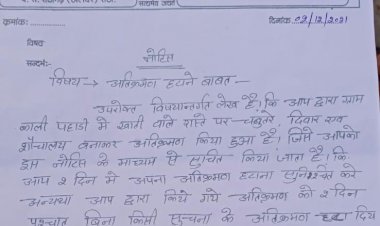 क्रमांक: दिनांक. 02/12/2021
विषय
सन्दर्भ:- नोटिस
विषय → अतिक्रमण हटाने बाबत —
उपरोक्त विषयान्तर्गत लेख है। कि आप द्वारा ग्राम
काली पहाडी मे खानी वाले रास्ते पर चबूतरे, दिवार एवं
शौचालय बनाकर अतिक्रमण किया हुआ है। जिसे आपको
इस नोटिस के माध्यम से सुचित किया जाता है। कि
आप 2 दिन मे अपना अतिक्रमण हटाना सुनिश्चित करे
अन्यथा आप द्वारा किये गये अतिक्रमण को 2 दिन
पश्चात बिना किसी सुचना के अतिक्रमण हटा दिय